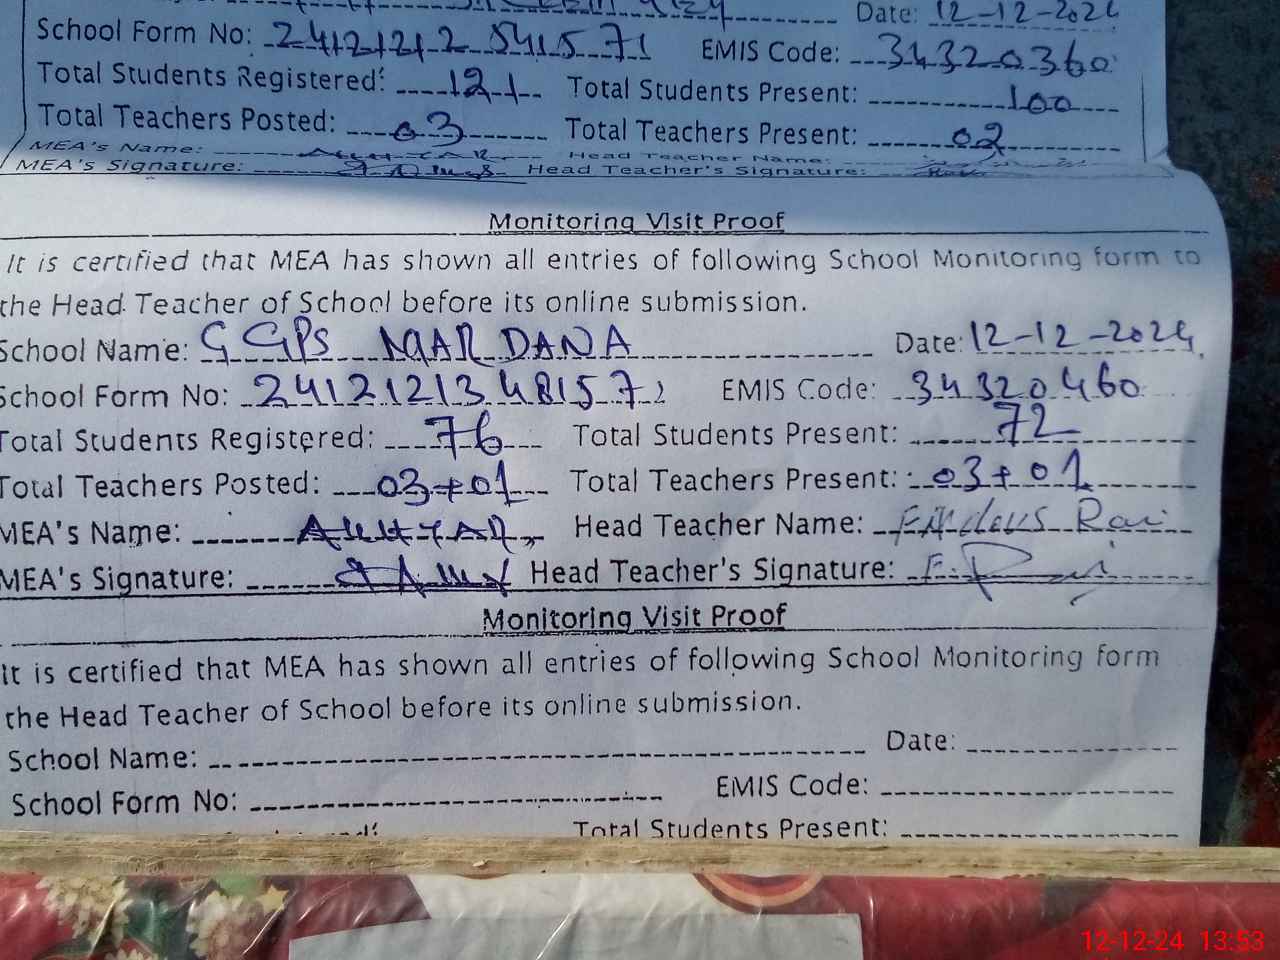 Date: 12-12-2024
School Form No: 2412121 2 5415 71 EMIS Code: 34320360
Total Students Registered: 121 Total Students Present: 100
Total Teachers Posted: 03 Total Teachers Present: 02
MEA's Name: Head Teacher Name:
MEA's Signature: Head Teacher's Signature:
Monitoring Visit Proof
It is certified that MEA has shown all entries of following School Monitoring form to
the Head Teacher of School before its online submission.
School Name: GGPS MARDANA Date: 12-12-2024
School Form No: 241212134815 7 EMIS Code: 34320460
Total Students Registered: 76 Total Students Present: 72
Total Teachers Posted: 03+01 Total Teachers Present: 03+01
MEA's Name: Head Teacher Name: Firdous
MEA's Signature: Head Teacher's Signature:
Monitoring Visit Proof
It is certified that MEA has shown all entries of following School Monitoring form
the Head Teacher of School before its online submission.
School Name: Date:
School Form No: EMIS Code:
Total Students Present:
12-12-24 13:53